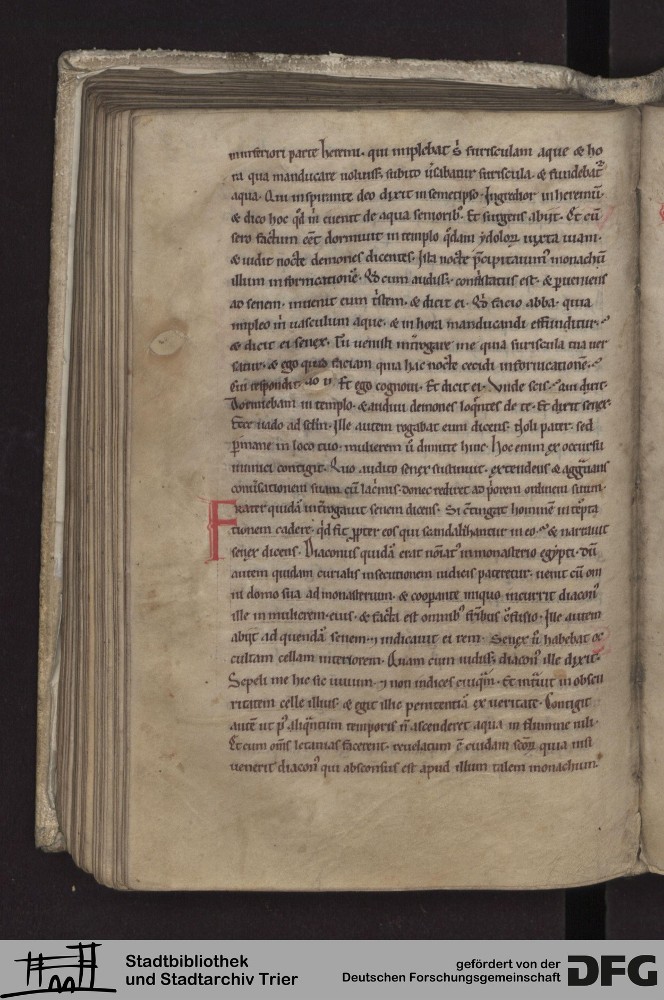 in interiori parte heremi. qui implebat s̄ surisculam aque & ho
ra qua manducare uoluiss& subito uersabatur suriscula. & fundebat
aqua. Qui inspirante deo dixit in semetipso. Ingredior in heremū.
& dico hoc qd m̄ euenit de aqua senioribꝰ. Et surgens abijt. Et cū
sero factum eēt dormiuit in templo qdam ydoloꝝ iuxta uiam.
& audit nocte demones dicentes. Ista nocte p̄cipitauimꝰ monachū
illum in fornicationē. Qd cum audiss& contstatus est. & pueniens
ad senem. inuenit eum tstem. & dicit ei. Qd facio abba. quia
impleo m̄ uasculum aque. & in hora manducandi effunditur.
& dicit ei senex. Tu uenisti introgare me quia suriscula tua uer
satur. & ego quid faciam quia hac nocte cecidi in fornicationē.
Et ego cognoui. Et dicit ei. Vnde scis.
Dormiebam in templo. & audiui demones loqntes de te. Et dixit senex.
Ecce uado ad sclm. Ille autem rogabat eum dicens. Noli pater. sed
pmane in loco tuo. mulierem ū dimitte hinc. Hoc enim ex occursu
inimici contigit. Quo audito senex sustinuit. extendens & aggrauans
conuersationem suam cū lacrimis. donec rediret ad p̄orem ordinem suum.
Frater quidā introgauit senem dicens. Si ctingit hominē in tēpta
tionem cadere. qd fit ppter eos qui scandalizantur in eo. & narrauit
senex dicens. Diaconus quidā erat noīatꝰ in monasterio egypti. Dū
autem quidam curialis insecutionem iudicis pateretur. uenit cū om
ni domo sua ad monasterium. & coopante iniquo incurrit diaconꝰ
ille in mulierem eius. & facta est omnibꝰ frībus cfusio. Ille autem
abijt ad quendā senem. ⁊ indicauit ei rem. Senex ū habebat oc
cultam cellam interiorem. Quam cum uidiss& diaconꝰ ille dixit.
Sepeli me hic sic uiuum. ⁊ non indices cuiqm. Et intuit in obscu
ritatem celle illius. & egit illic penitentiā ex ueritate. Contigit
autē ut pꝰ aliqntum temporis n̄ ascenderet aqua in flumine nili.
Et cum oms letanias facerent. reuelatum ē cuidam scoꝝ quia nisi
uenerit diaconꝰ qui absconsus est apud illum talem monachum.
Stadtbibliothek
und Stadtarchiv Trier
gefördert von der
Deutschen Forschungsgemeinschaft DFG